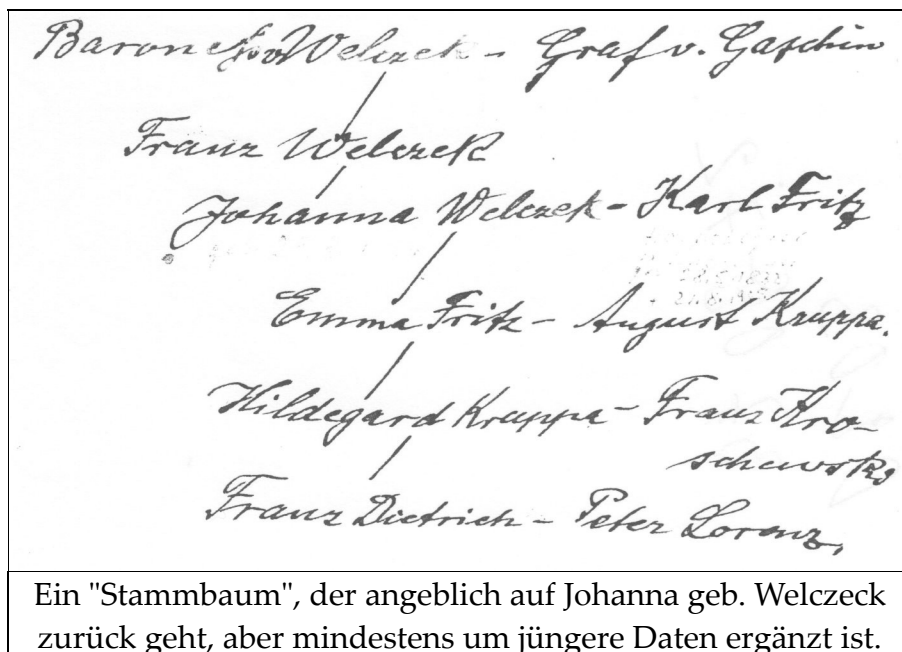 Baroness v. Welczek - Graf v. Gaschin
Franz Welczek
Johanna Welczek - Karl Fritz
Emma Fritz - August Kruppa.
Hildegard Kruppa - Franz Kro-
schewsky
Franz Dietrich - Peter Lorenz,
Ein "Stammbaum", der angeblich auf Johanna geb. Welczeck
zurück geht, aber mindestens um jüngere Daten ergänzt ist.